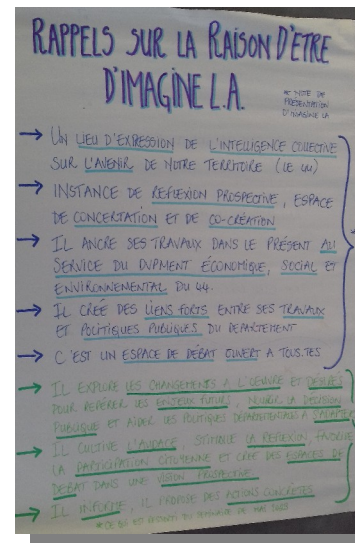 RAPPELS SUR LA RAISON D'ÊTRE
D'IMAGINE L.A.
* NOTE DE
PRÉSENTATION
D'IMAGINE LA
→ UN LIEU D'EXPRESSION DE L'INTELLIGENCE COLLECTIVE
SUR L'AVENIR DE NOTRE TERRITOIRE (LE 44)
→ INSTANCE DE REFLEXION PROSPECTIVE, ESPACE
DE CONCERTATION ET DE CO-CRÉATION
→ IL ANCRE SES TRAVAUX DANS LE PRÉSENT AU
SERVICE DU DVPMENT ÉCONOMIQUE, SOCIAL ET
ENVIRONNEMENTAL DU 44.
→ IL CRÉE DES LIENS FORTS ENTRE SES TRAVAUX
ET POLITIQUES PUBLIQUES DU DEPARTEMENT
→ C'EST UN ESPACE DE DÉBAT OUVERT A TOUS.TES
→ IL EXPLORE LES CHANGEMENTS A L'OEUVRE ET DÉSIRÉS
POUR REPÉRER LES ENJEUX FUTURS, NOURRIR LA DÉCISION
PUBLIQUE ET AIDER LES POLITIQUES DÉPARTEMENTALES A S'ADAPTER
→ IL CULTIVE L'AUDACE, STIMULE LA REFLEXION, FAVORISE
LA PARTICIPATION CITOYENNE ET CRÉE DES ESPACES DE
DÉBAT DANS UNE VISION PROSPECTIVE
→ IL INFORME, IL PROPOSE DES ACTIONS CONCRÈTES